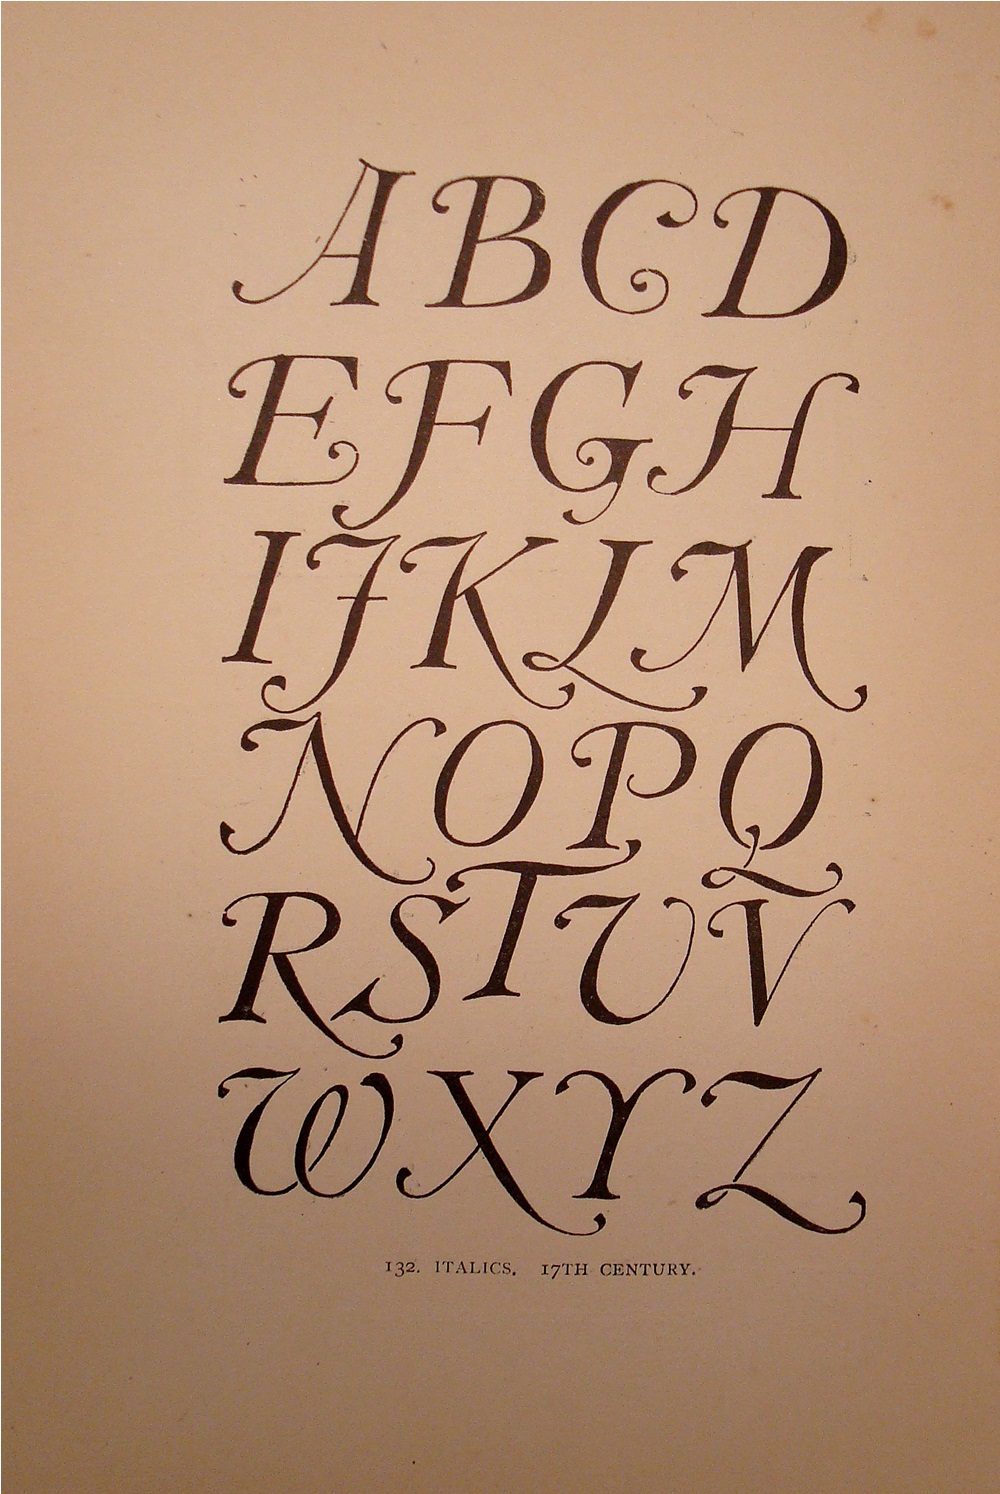 ABCD
EFGH
IJKLM
NOPQ
RSTUV
WXYZ
132. ITALICS. 17TH CENTURY.